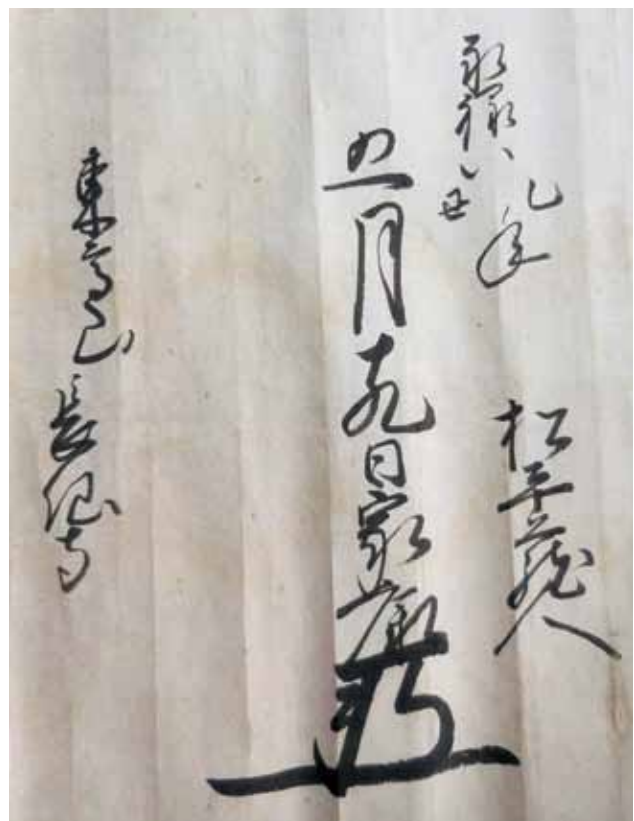 永禄八乙丑年
松平蔵人
五月十九日家康
東高山 長仙寺